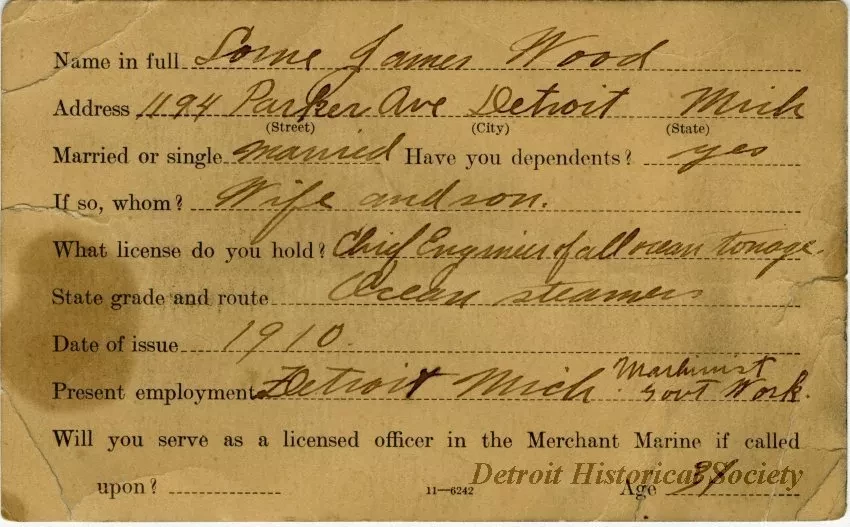 Name in full Lorne James Wood
Address 1194 Parker Ave Detroit Mich
(Street) (City) (State)
Married or single married Have you dependents? yes
If so, whom? Wife and son.
What license do you hold? Chief Engineer of all ocean tonage.
State grade and route Ocean steamers
Date of issue 1910.
Present employment Detroit Mich Machinist
Govt Work.
Will you serve as a licensed officer in the Merchant Marine if called
upon? 11—6242 Age
Detroit Historical Society